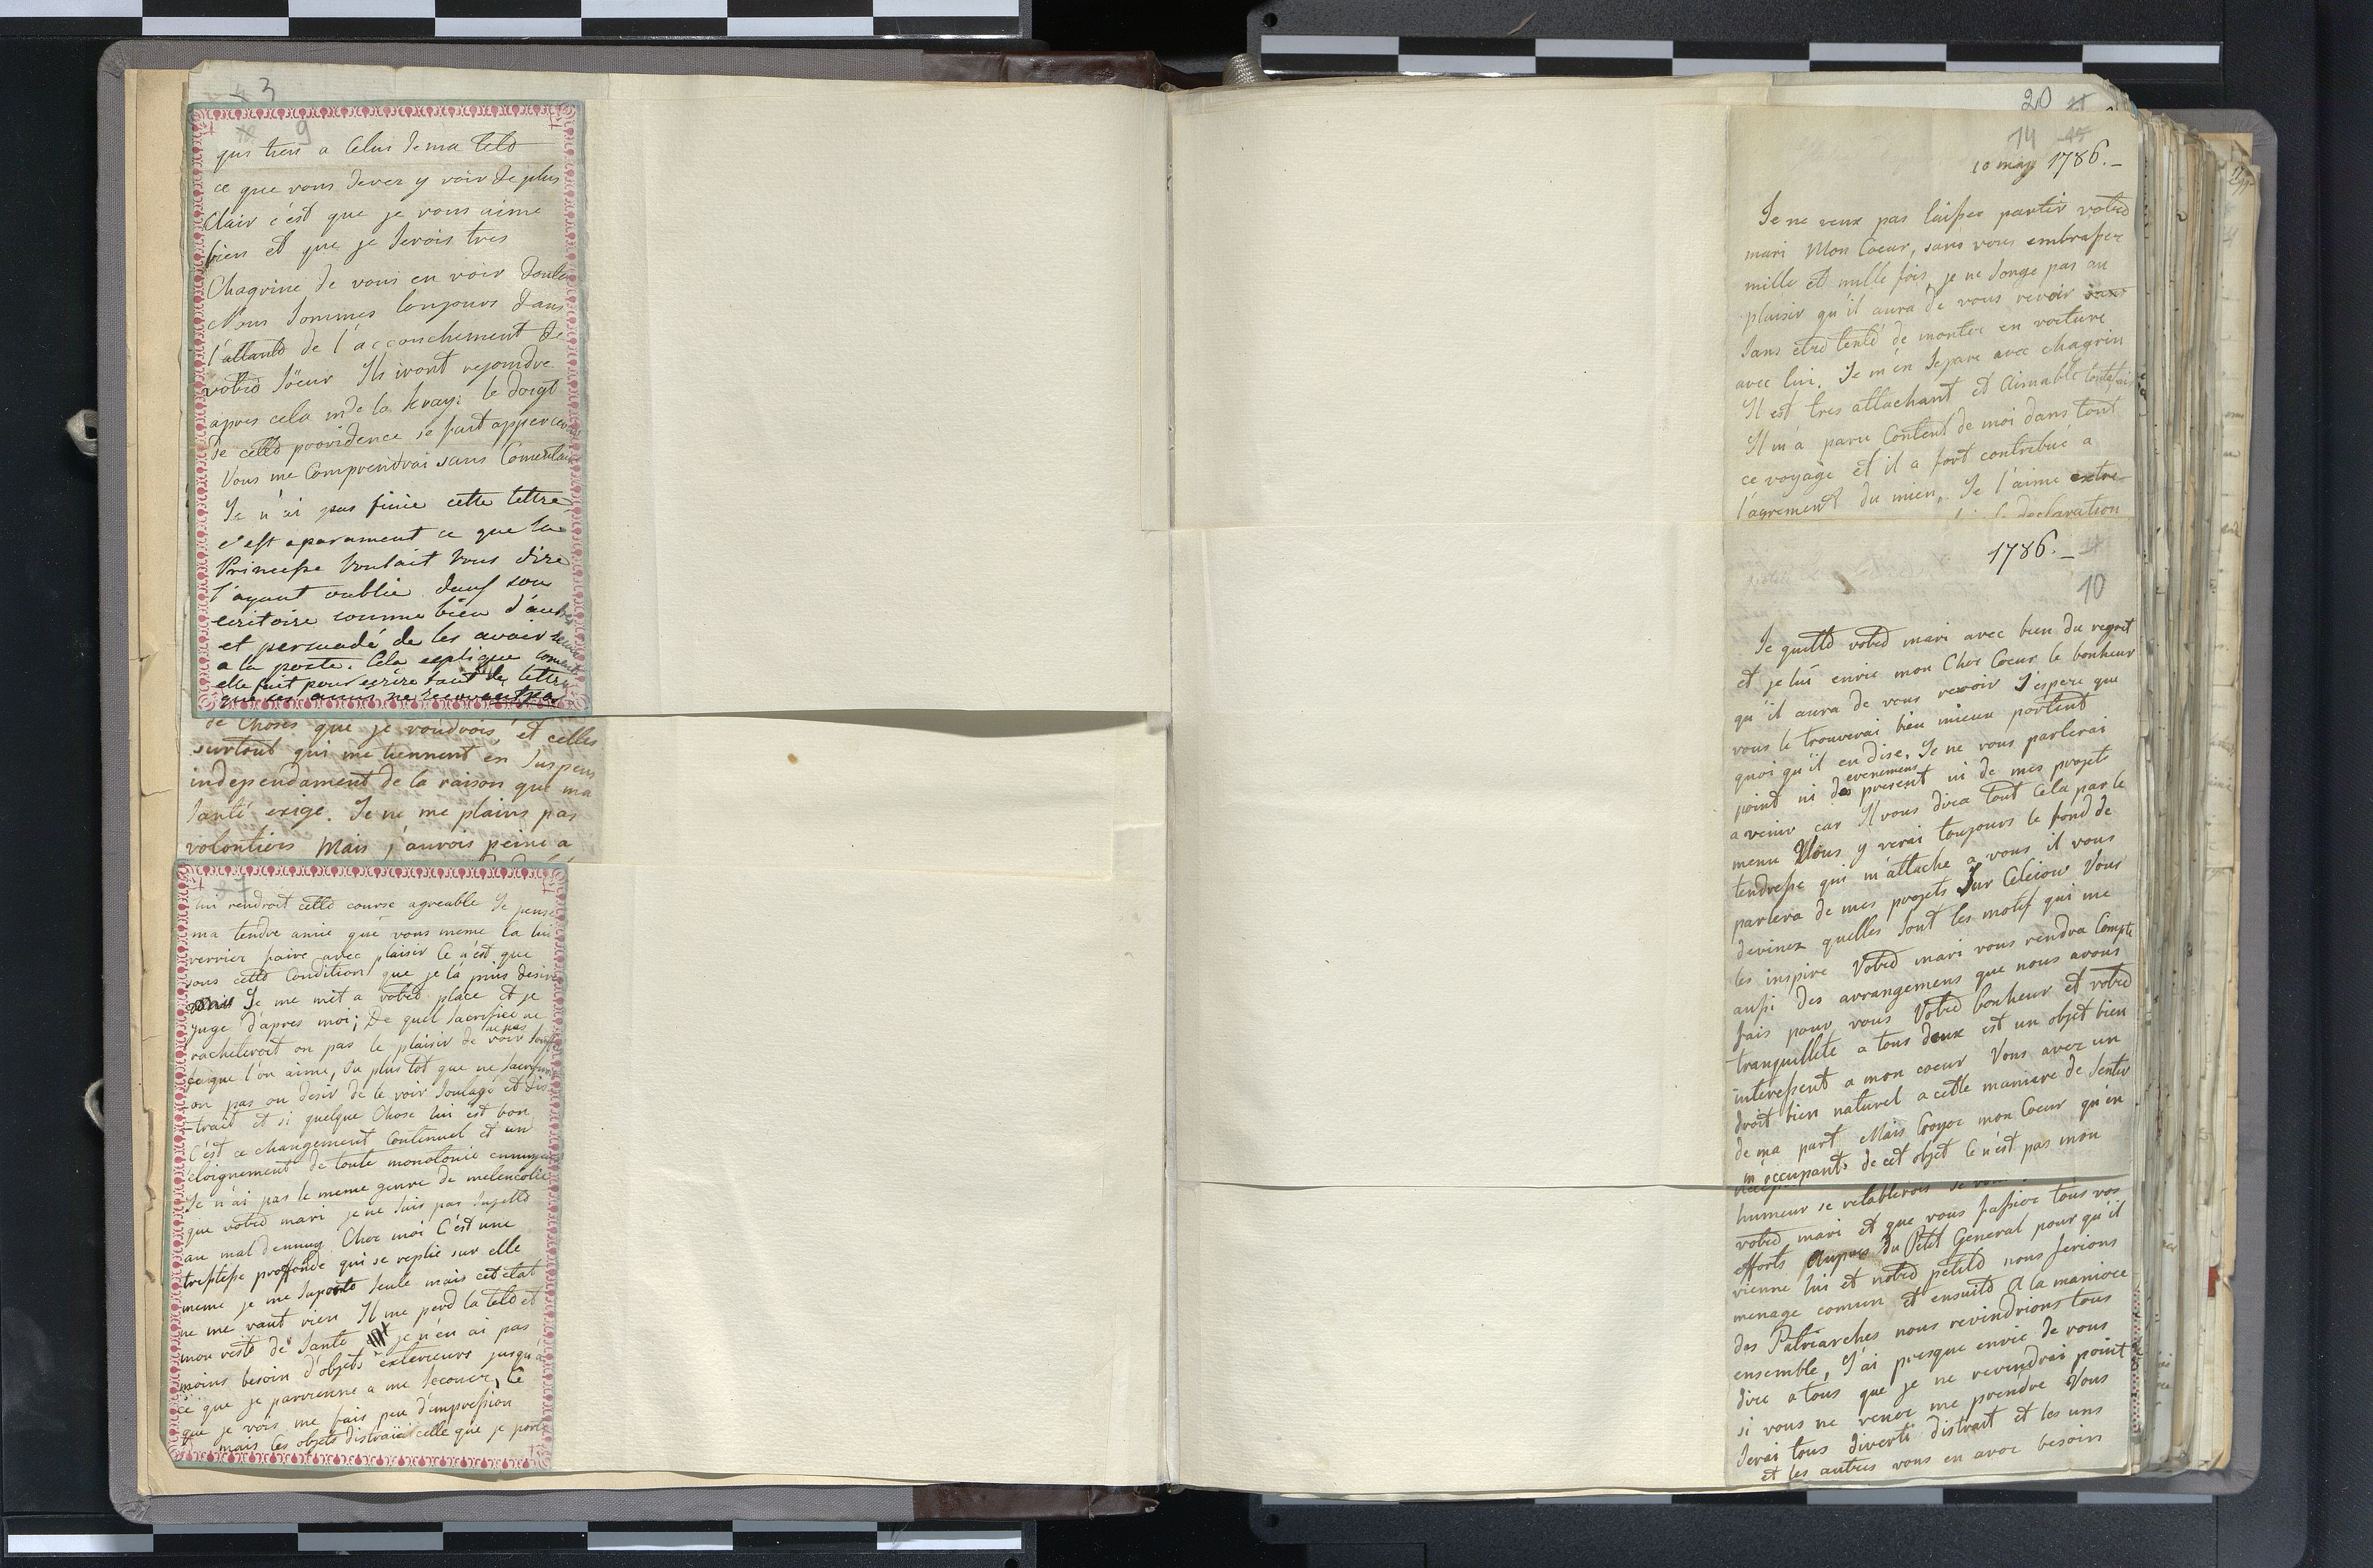 3
9
qui tien a Celui de ma tete
ce que vous devez y voir de plus
Clair c'est que je vous aime
bien et que je serois tres
Chagrine de vous en voir douter
Nous sommes toujours dans
l'attante de l'accouchement de
votre soeur Ils iront rejoindre
apres cela mde la kray: le doigt
de cette providence se fait appercevoir
Vous me Comprendrai sans Comentaire
Je n'ai pas finie cette lettre
c'est aparament ce que la
Princesse Voulait Vous dire
l'ayant oublié dans son
ecritoire comme bien d'autres
et persuadé de les avoir
a la poste. Cela explique coment
elle fait pour ecrire tant de lettres
que ses amis ne reçoivent pas
de Choses que je voudrois, et celles
surtout qui me tiennent en suspens
independament de la raison que ma
santé exige. Je ne me plains pas
volontiers Mais j'aurois peine a
7
lui rendroit cette course agreable Je pense
ma tendre amie que vous meme la lui
verriez faire avec plaisir Ce n'est que
sous cette Condition que je la puis desirer
Je me met a votre place et je
juge d'apres moi; De quel sacrifice ne
racheteroit on pas le plaisir de ne pas voir souffrir
ce que l'on aime, ou plus tot que ne sacrifie
on pas au desir de le voir soulagé et dis
trait et si quelque Chose lui est bon
C'est ce changement Continuel et un
eloignement de toute monotonie ennuyeuse
Je n'ai pas le meme genre de melencolie
que votre mari je ne suis pas sujette
au mal d'ennuy Chez moi C'est une
tristesse proffonde qui se replie sur elle
meme je me suporte seule mais cet etat
ne me vaut rien Il me perd la tete et
mon reste de Santé je n'en ai pas
moins besoin d'objets exterieurs jusqu'a
ce que je parvienne a me secouer, Ce
que je vois me fais peu d'impression
mais les objets distraie celle que je porte
20
14
10 may 1786.
Je ne veux pas laisser partir votre
mari Mon Coeur, sans vous embrasser
mille et mille fois, je ne songe pas au
plaisir qu'il aura de vous revoir sans
sans etre tenté de monter en voiture
avec lui. Je m'en separe avec chagrin
Il est tres attachant et Aimable toutefois
Il m'a paru Content de moi dans tout
ce voyage et il a fort contribué a
l'agrement du mien. Je l'aime extre
la declaration
1786.
10
Je quitte votre mari avec bien du regret
et je lui envie mon Cher Coeur le bonheur
qu'il aura de vous revoir J'espere que
vous le trouverai bien mieux portent
quoi qu'il en dise. Je ne vous parlerai
point ni des evenemens present ni de mes projets
a venir car Il vous dira tout Cela par le
menu Vous y verai toujours le fond de
tendresse qui m'attache a vous il vous
parlera de mes projets Sur Celeiow Vous
devinez quelles sont les motif qui me
les inspire Votre mari vous rendra Compte
aussi des arrangemens que nous avons
fais pour vous Votre bonheur et votre
tranquillité a tous deux est un objet bien
interessent a mon coeur Vous avez un
droit bien naturel a cette maniere de sentir
de ma part Mais Croyez mon Coeur qu'en
m'occupant de cet objet Ce n'est pas mon
humeur se retablerois
votre mari et que vous fassiez tous vos
efforts Aupres du Petit General pour qu'il
vienne lui et notre petite nous ferions
menage comun et ensuite A la maniere
des Patriarches nous reviendrions tous
ensemble, J'ai presque envie de vous
dire a tous que je ne reviendrai point
si vous ne venez me prendre Vous
serai tous diverti distrait et les uns
et les autres vous en avez besoin